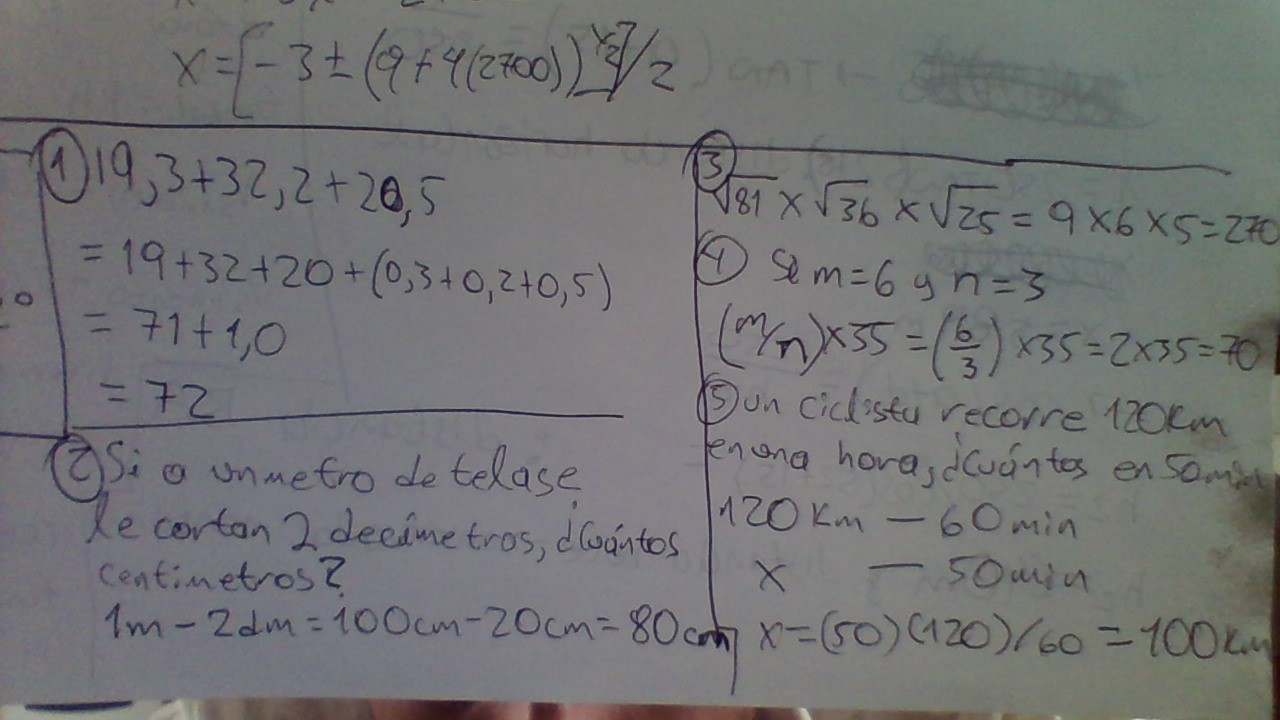 x=[-3±(9+4(2700))^½]/2
① 19,3+32,2+20,5
= 19+32+20+(0,3+0,2+0,5)
= 71+1,0
= 72
② Si a un metro de tela se
le cortan 2 decímetros, ¿Cuántos
centimetros?
1m - 2dm = 100cm - 20cm = 80cm
③
√81 x √36 x √25 = 9 x 6 x 5 = 270
④ Se m=6 y n=3
(m/n)x35 = (6/3) x35 = 2x35 = 70
⑤ un ciclista recorre 120Km
en una hora, ¿Cuántos en 50min
120 Km — 60 min
x — 50 min
x = (50)(120)/60 = 100Km